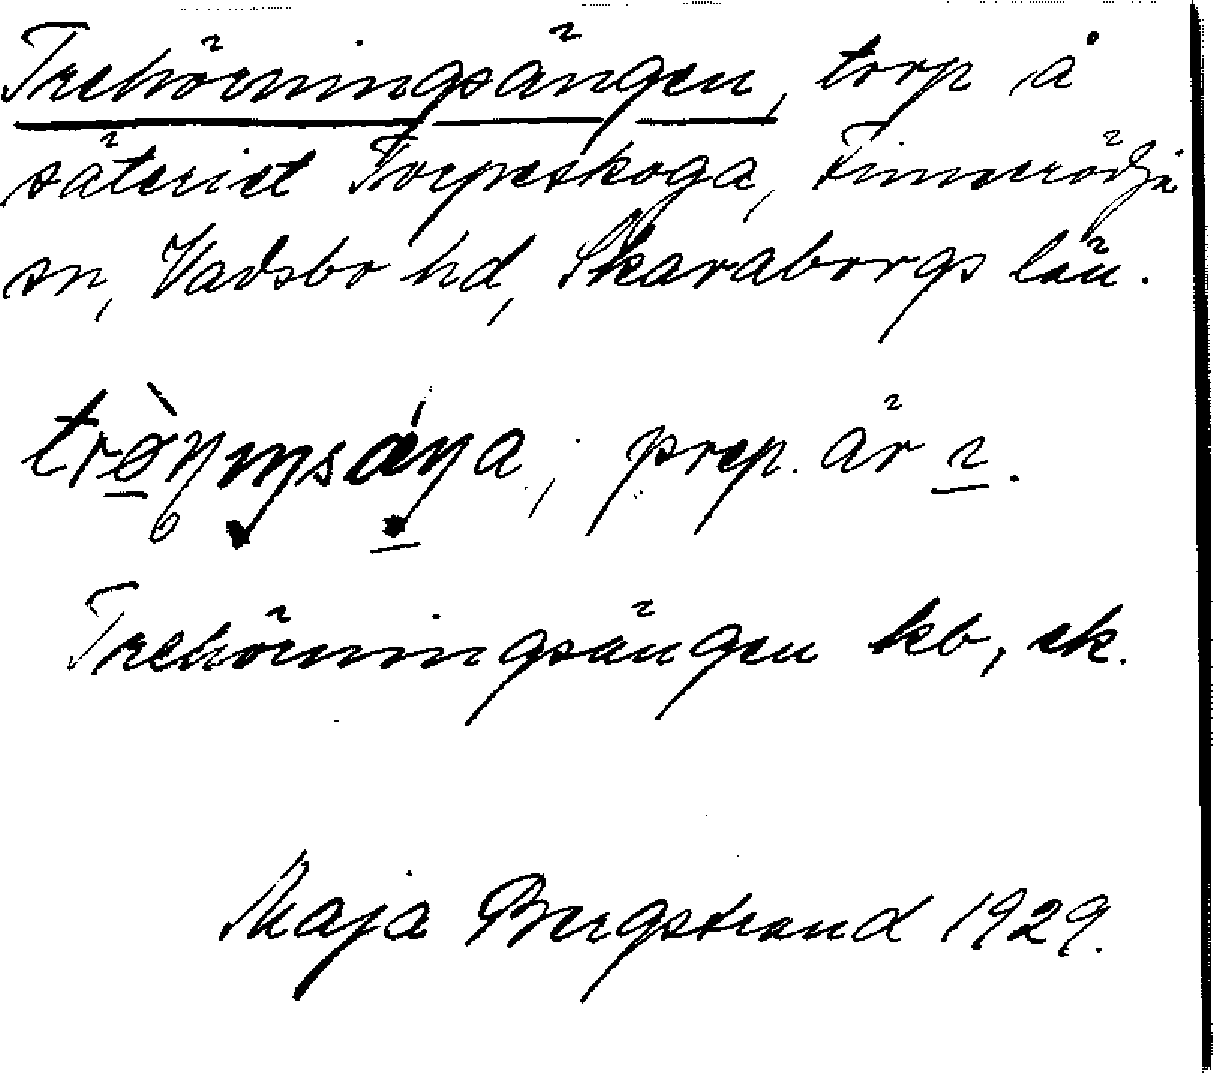 Trehörningsängen, torp å
säteriet Torpeskoga, Finnerödja
sn, Vadsbo hd, Skaraborgs län.
prep. är i.
Trehörningsängen kb, ek.
Maja Bergstrand 1929.